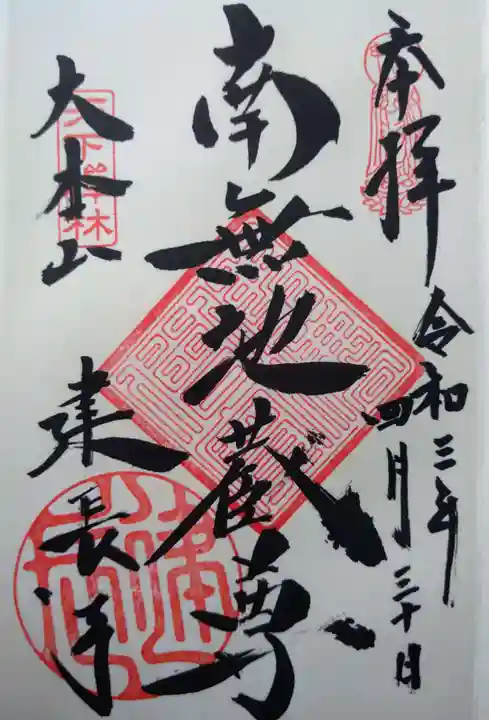 奉拝
令和三年
四月三十日
南無地蔵尊
大本山
建長寺
天下禅林